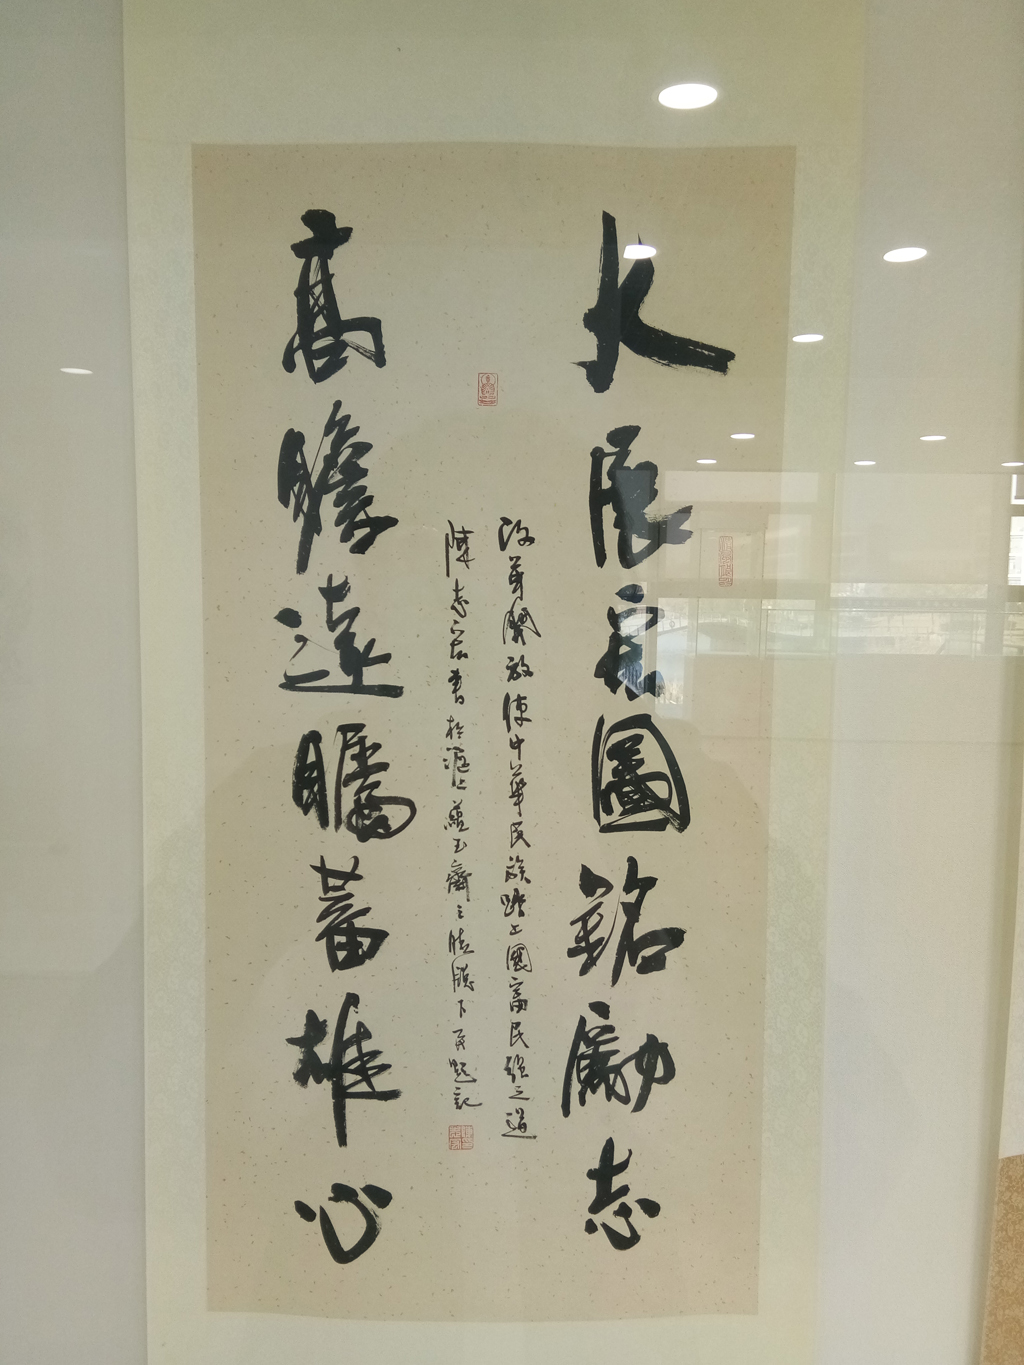 大展宏圖銘勵志
高瞻遠矚蓄雄心
改革開放使中華民族踏上國富民強之道
陳志宏書於滬上蘊玉齋之 下 題記